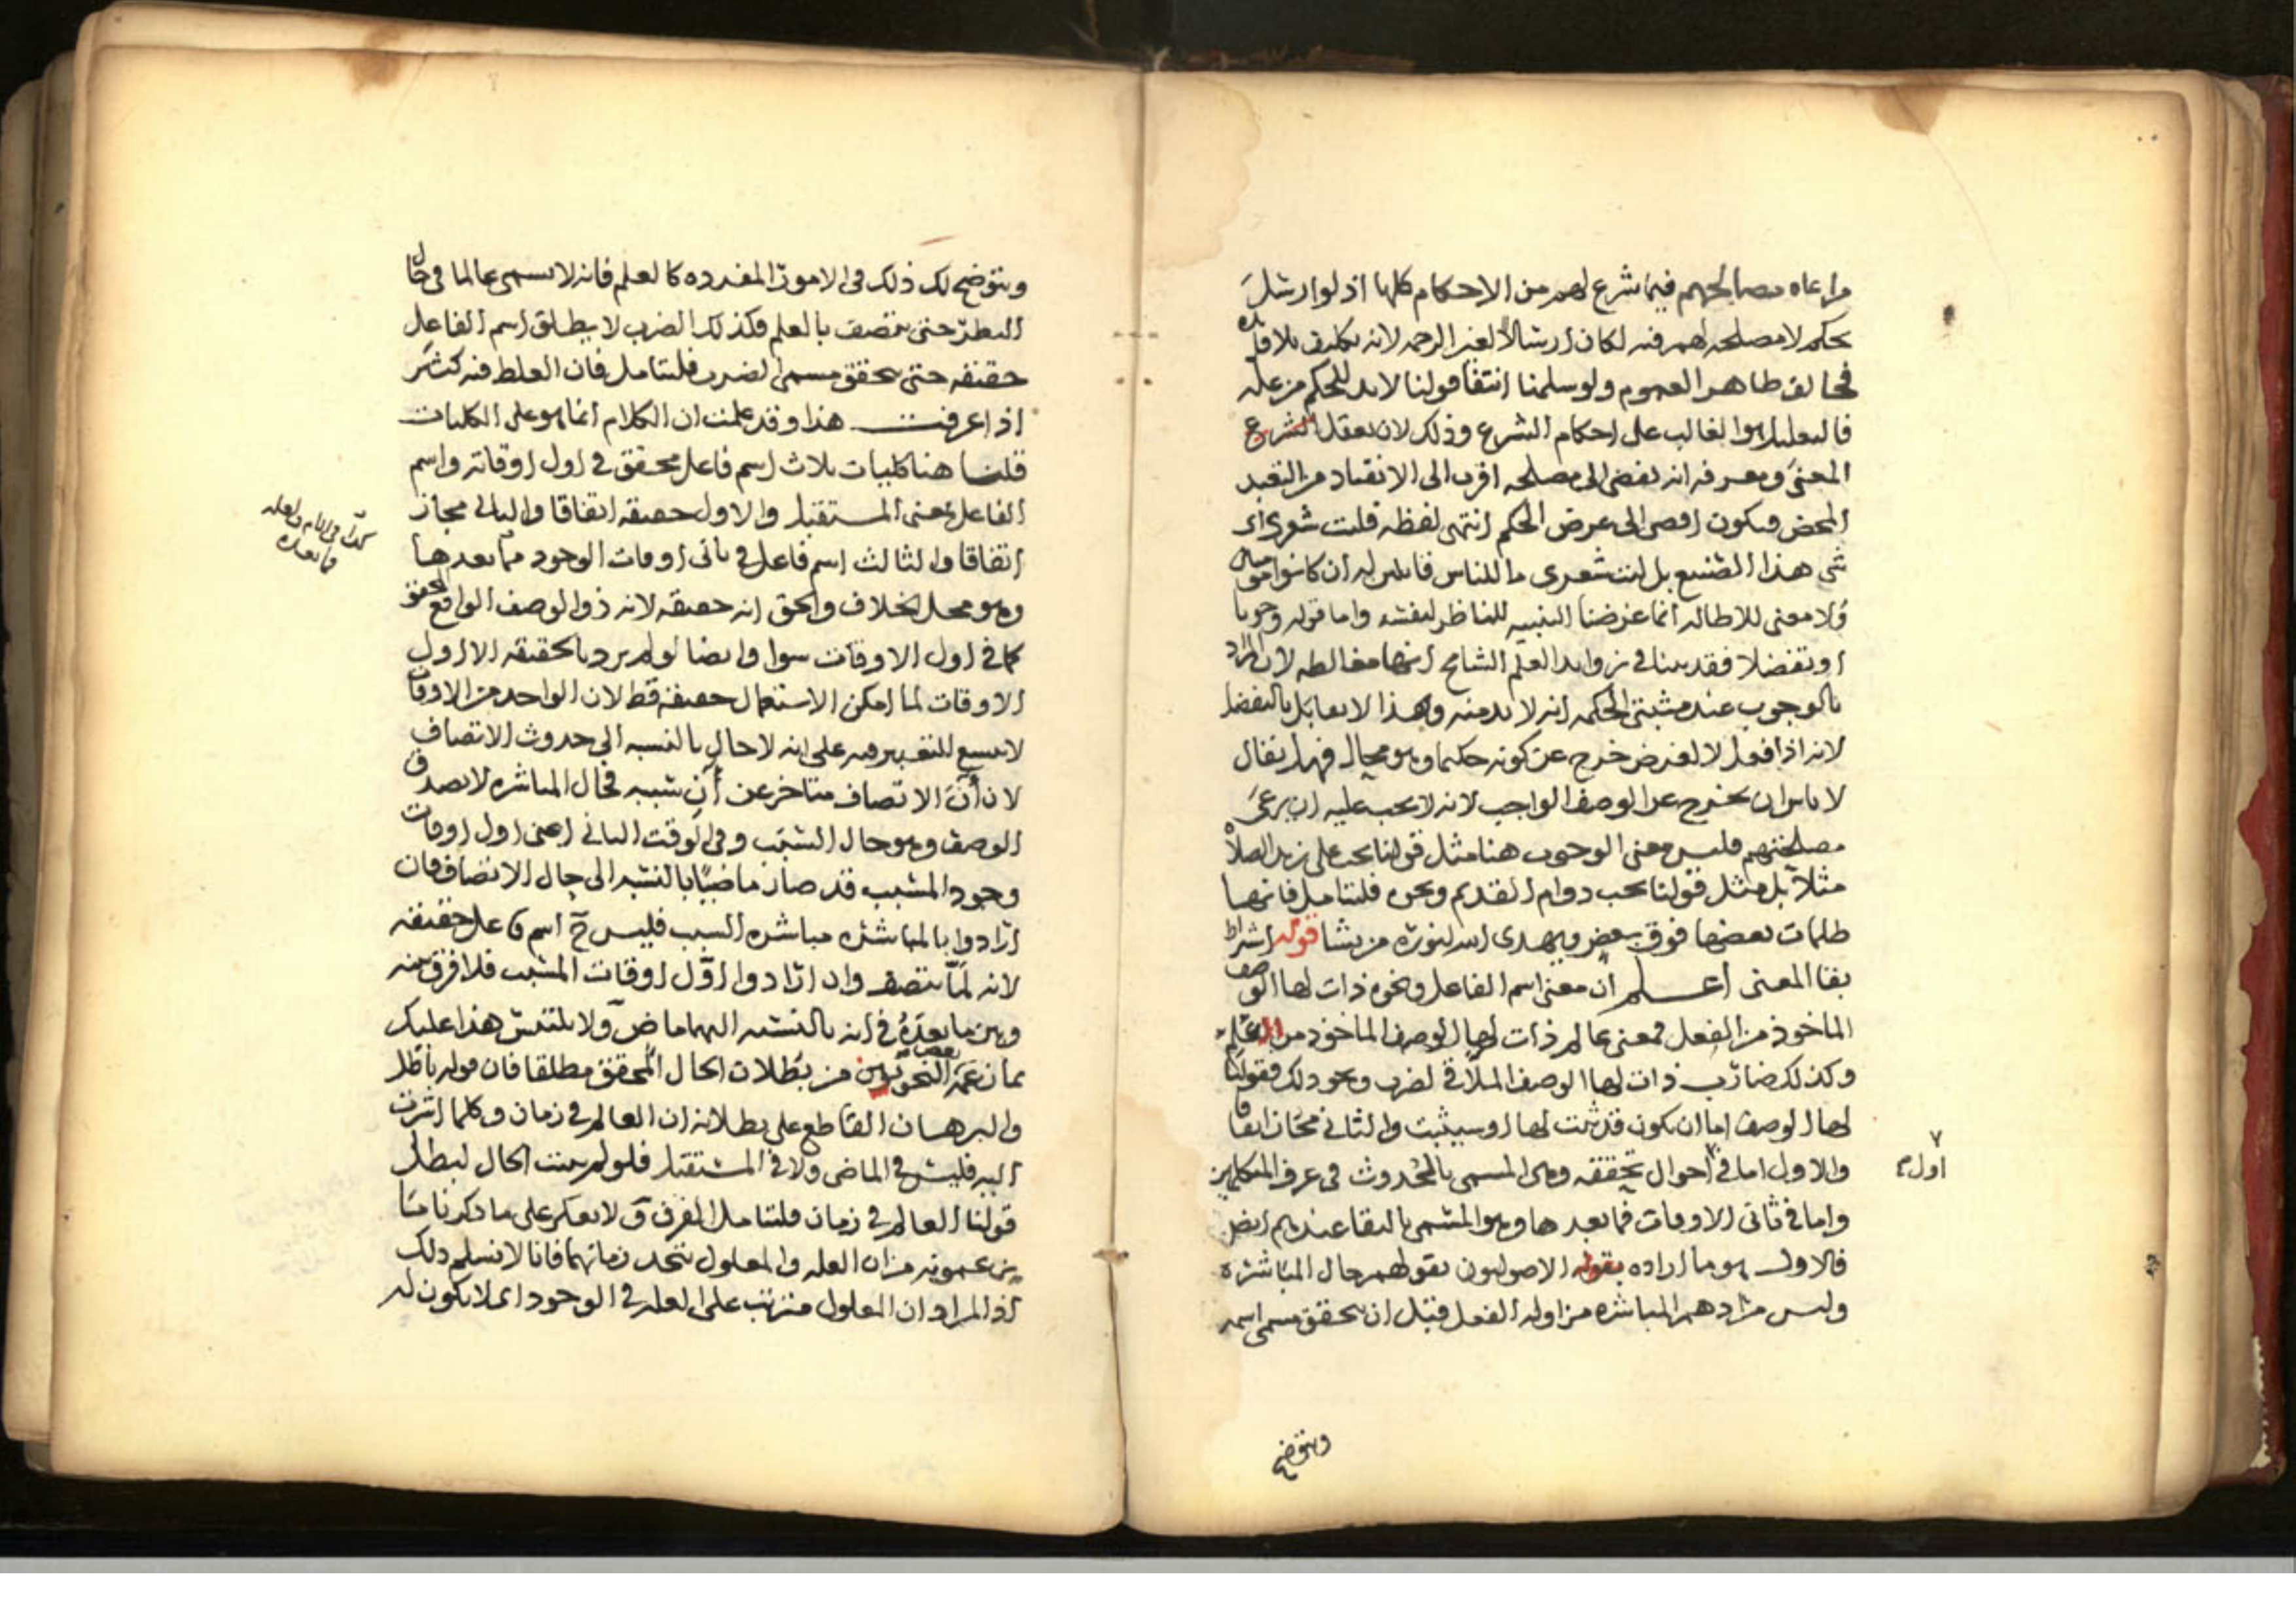 مراعاه مصالحهم فيما شرع لهم من الاحكام كلها اذ لو ارسل
بحكم لا مصلحه لهم فيه لكان ارسالا لغير الرحمه لانه تكليف بلا فائده
فخالف ظاهر العموم ولو سلمنا انتفا قولنا لا بد للحكم من عله
فالتعليل هو الغالب على احكام الشرع وذلك لان تعقل الشرع
المعنى ومعرفه انه يفضي الى مصلحه اقرب الى الانقياد من التعبد
المحض فيكون افضى الى غرض الحكم انتهى لفظه قلت شعرى اى
شى هذا الصنيع بل ليت شعرى ما للناس قابلين له ان كانوا
ولا معنى للاطاله انما غرضنا التنبيه للناظر لنفسه واما قوله وجوبا
او تفضلا فقد بينا في زوايد العلم الشامخ انها مغالطه لان المراد
بالوجوب عند مثبتى الحكمه انه لا بد منه وهذا لا يقابل بالتفضل
لانه اذا فعل لا لغرض خرج عن كونه حكيما وهو محال فهل يقال
لا باس ان يخرج عن الوصف الواجب لانه لا يجب عليه ان يرعى
مصلحتهم فليس معنى الوجوب هنا مثل قولنا يجب على زيد الصلاه
مثلا بل مثل قولنا يجب دوام القديم ونحوه فليتامل فانها
ظلمات بعضها فوق بعض ويهدى الله لنوره من يشا قوله اشتراط
بقا المعنى اعلم ان معنى اسم الفاعل ونحوه ذات لها الوصف
الماخوذ من الفعل فمعنى عالم ذات لها الوصف الماخوذ من العلم
وكذلك ضارب ذات لها الوصف الملاقى لضرب ونحو ذلك فقولنا
لها الوصف اما ان يكون قد ثبت لها او سيثبت والثاني مجاز اتفاقا
والاول اما في احوال تحققه وهى المسمى بالحدوث فى عرف المتكلمين
اول
واما في ثانى الاوقات فما بعدها وهو المسمى بالبقا عندهم ايضا
فالاول هو ما اراده بقوله الاصوليون بقولهم حال المباشره
وليس مرادهم المباشره مزاوله الفعل قبل ان يتحقق مسمى اسمه
ويتوضح
ويتوضح لك ذلك فى الامور المفرده كالعلم فانه لا يسمى عالما في حال
النظر حتى يتصف بالعلم فكذلك الضرب لا يطلق اسم الفاعل
حقيقه حتى يتحقق مسمى الضرب فليتامل فان الغلط فيه كثير
اذا عرفت هذا وقد علمت ان الكلام انما هو على الكليات
قلنا هنا كليات ثلاث اسم فاعل محقق في اول اوقاته واسم
الفاعل بمعنى المستقبل والاول حقيقه اتفاقا والثانى مجاز
اتفاقا والثالث اسم فاعل في ثانى اوقات الوجود فما بعدها
كذا فى الام ولعله
فما بعده
وهو محل الخلاف والحق انه حقيقه لانه ذو الوصف الواقع المحقق
كما في اول الاوقات سوا وايضا لو لم يرد بالحقيقه الا اول
الاوقات لما امكن الاستعمال حقيقه قط لان الواحد من الاوقات
لا يسع للتعبير فيه على انه لا حال بالنسبه الى حدوث الاتصاف
لان آن الاتصاف متاخر عن آن سببه فحال المباشره لا يصدق
الوصف وهو حال السبب وفى الوقت الثانى اعنى اول اوقات
وجود المسبب قد صار ماضيا بالنسبه الى حال الاتصاف فان
ارادوا بالمباشره مباشره السبب فليس ح اسم فاعل حقيقه
لانه لما يتصف وان ارادوا اول اوقات المسبب فلا فرق بينه
وبين ما بعده في انه بالنسبه اليهما ماض ولا يلتبس هذا عليك
بما زعمه بعض النحويين من بطلان الحال المحقق مطلقا فان قوله باطل
والبرهان القاطع على بطلانه ان العالم في زمان وكلما اشرت
اليه فليس في الماضى ولا في المستقبل فلو لم يثبت الحال لبطل
قولنا العالم في زمان فليتامل الفرق ولا يعكر على ما ذكرنا ما
يزعمونه من ان العله والمعلول يتحد زمانهما فانا لا نسلم ذلك
اذ المراد ان المعلول مترتب على العله في الوجود اى لا يكون له